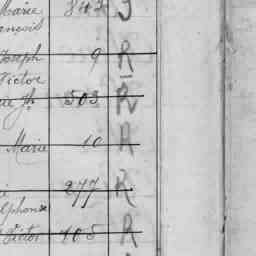 Marie 843 J
ançois
Joseph 9 R
Victor
ie Jh 503 R
Marie 10 A
277 R
lphonse
Victor 108 R